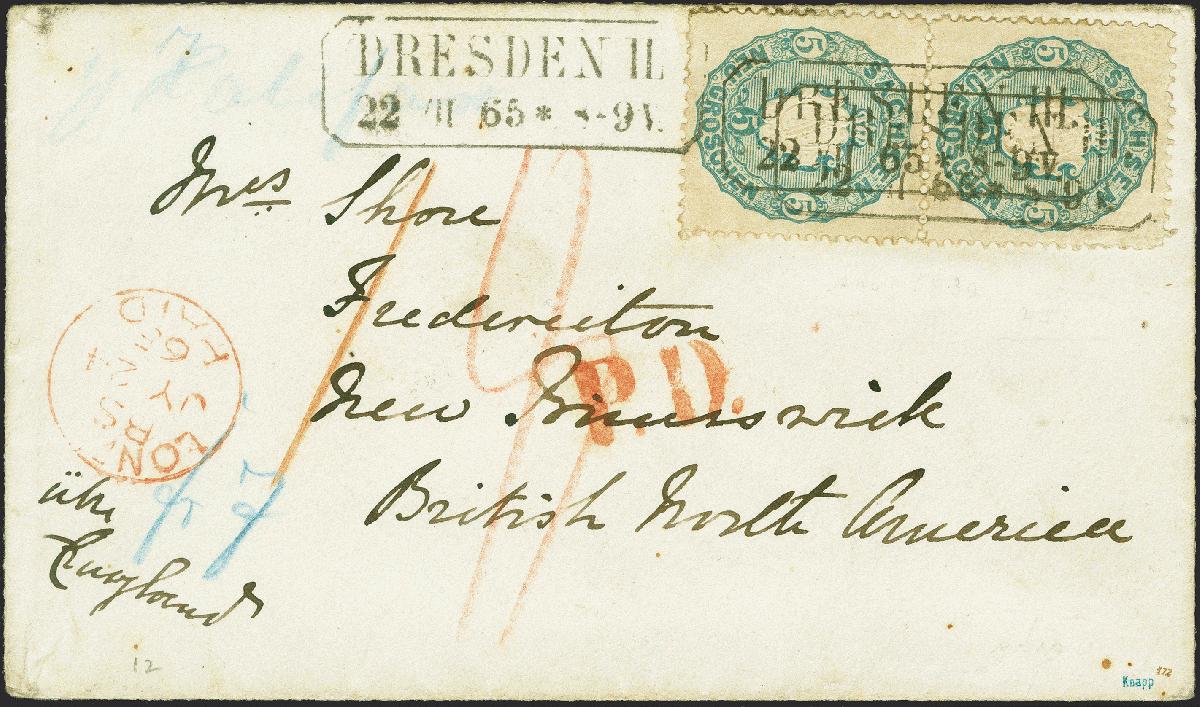 DRESDEN III.
22 VII 65 * 8-9 V.
NEU-GROSCHEN SACHSEN
5 5
5
NEU-GROSCHEN SACHSEN
5 5
5
DRESDEN III.
22 VII 65 * 8-9 V.
Mrs Shore
Fredericton
New Brunswick
British North America
P.D.
LONDON
PAID
über
England
12
Knapp